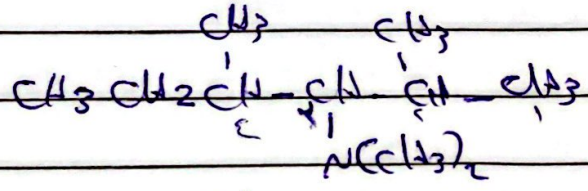 CH3 CH3
CH3 CH2 CH - CH - CH - CH3
N(CH3)2